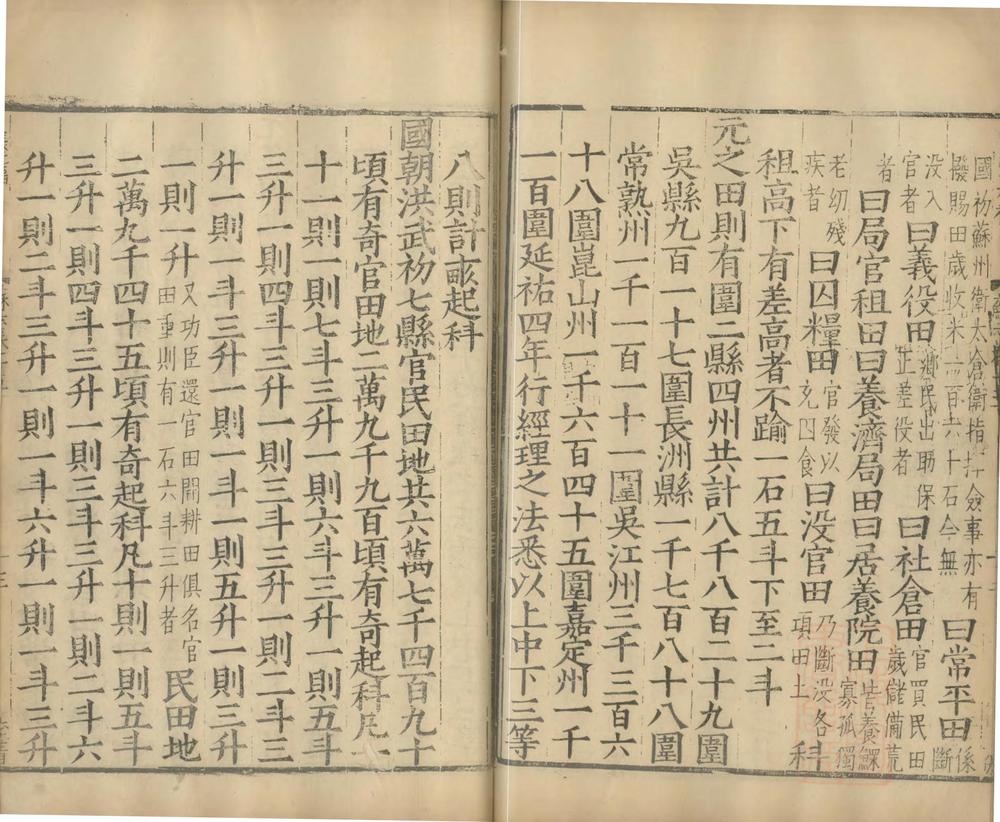 國初蘇州衛太倉衛指揮僉事亦有撥賜田歲收米一百六十石今無曰常平田係斷
没入官者曰義役田鄉民出助保正差役者曰社倉田官買民田歲儲備荒
者曰局官租田曰養濟局田曰居養院田皆養鰥寡孤獨
老幼殘疾者曰囚糧田官發以充囚食曰没官田乃斷没各項田土科
租高下有差高者不踰一石五斗下至二斗
元之田則有圍二縣四州共計八千八百二十九圍
吳縣九百一十七圍長洲縣一千七百八十八圍
常熟州一千一百一十一圍吳江州三千三百六
十八圍崑山州一千六百四十五圍嘉定州一千
一百圍延祐四年行經理之法悉以上中下三等
八則計畝起科
國朝洪武初七縣官民田地共六萬七千四百九十
頃有奇官田地二萬九千九百頃有奇起科凡一
十一則一則七斗三升一則六斗三升一則五斗
三升一則四斗三升一則三斗三升一則二斗三
升一則一斗三升一則一斗一則五升一則三升
一則一升又功臣還官田開耕田俱名官田重則有一石六斗三升者民田地
二萬九千四十五頃有奇起科凡十則一則五斗
三升一則四斗三升一則三斗三升一則二斗六
升一則二斗三升一則一斗六升一則一斗三升